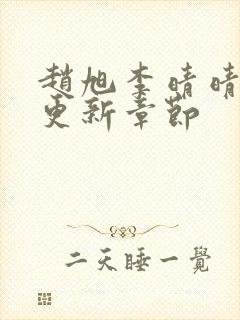 趙旭李晴晴
更新章節
二天睡一覺